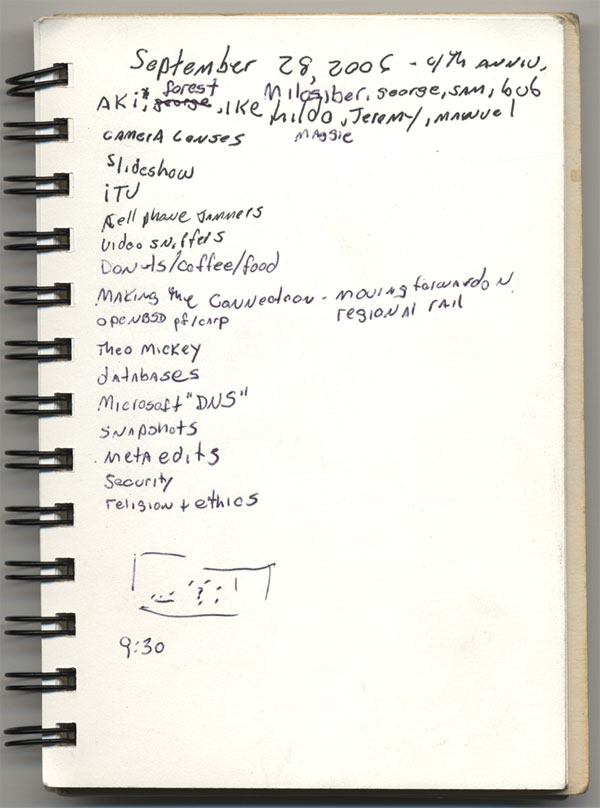 September 28, 2005 - 4th ANNIV.
AKi, forest george, IKE, hildo, Jeremy, MANUEL
Milos, iber, george, SAM, bob
CAMERA LENSES MAGGIE
Slideshow
iTU
Cell phone jammers
Video sniffers
Donuts/coffee/food
MAKING the CONNECTION - moving forward on
regional rail
openBSD pf/carp
Theo Mickey
databases
Microsoft "DNS"
snapshots
meta edits
Security
religion + ethics
?
9:30